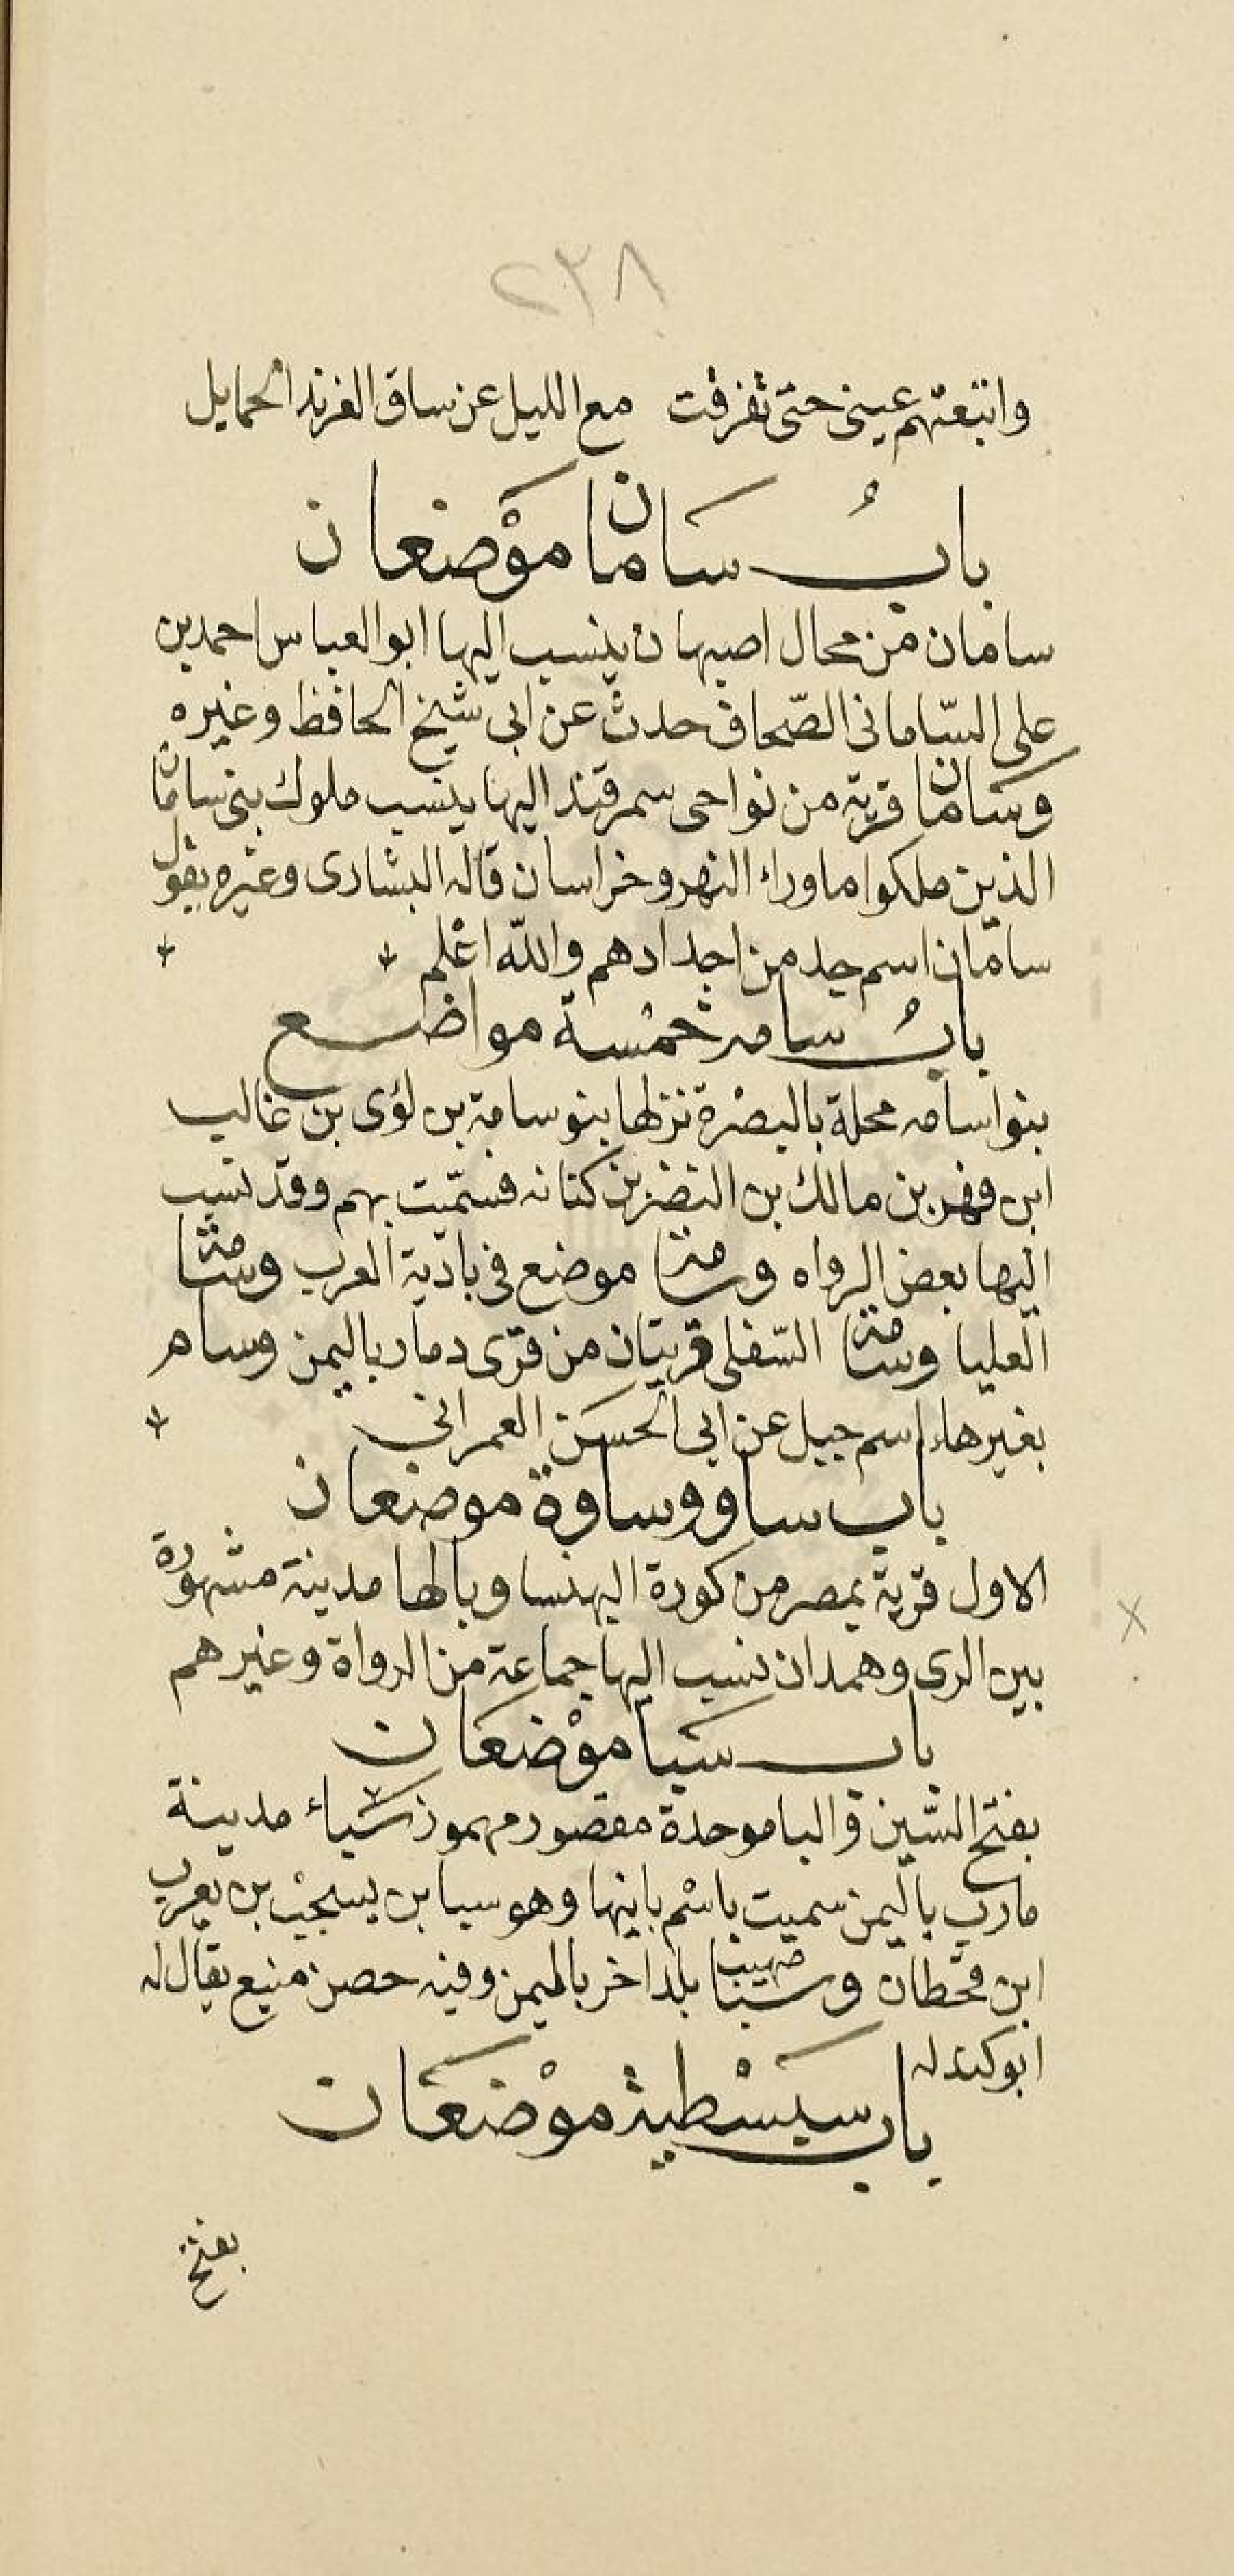 ٢٣٨
واتبعتهم عينى حتى تفرقت مع الليل عن ساق الفرند الحمايل
بابُ سامان موْضعان
سامان من محال اصبهان ينسب اليها ابو العباس احمد بن
على السّامانى الصّحاف حدث عن ابى شيخ الحافظ وغيره
وسامان قرية من نواحى سمرقند اليها ينسب ملوك بنى سامان
الذين ملكوا ماوراء النهر وخراسان قاله البشارى وغيره يقول
سامان اسم جد من اجدادهم والله اعلم
بابُ سامه خمْسة مواضع
بنوا سامه محلة بالبصْرة نزلها بنو سامة بن لؤى بن غالب
ابن فهر بن مالك بن النضر بن كنانه فسمّيت بهم وقد نسب
اليها بعض الرواه وسامة موضع فى بادية العرب وسامة
العليا وسامة السّفلى قريتان من قرى دمار باليمن وسام
بغير هاء اسم جبل عن ابى الحسَن العمرانى
باب ساو وساوة موضعان
الاول قرية بمصر من كورة البهنسا وبالها مدينة مشهورة
بين الرى وهمدان نسب اليها جماعة من الرواة وغيرهم
باب سَبا موْضعَان
بفتح السّين والبا موحدة مقصور مهموز سَباء مدينة
مارب باليمن سميت باسْم بانيها وهو سبا بن يسجب بن يعرب
ابن قحطان وسبا صهيب بلد اخر باليمن وفيه حصن منيع يقال له
ابو كندله
باب سبسْطية موْضعَان
بفتح